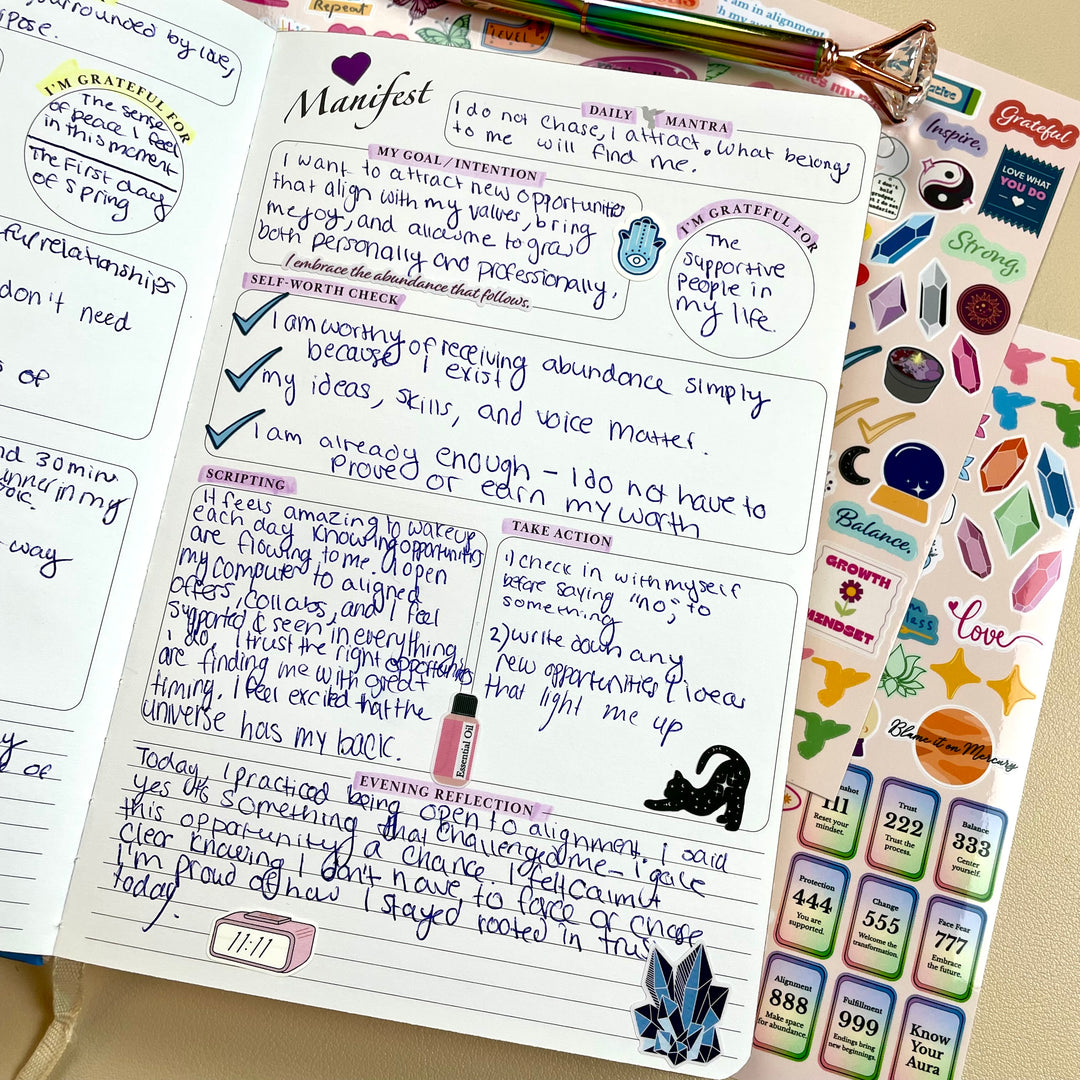 surrounded by love,
I'M GRATEFUL FOR
The sense
of peace I feel
in this moment
The First day
of Spring
relationships
don't need
of
30 min.
in my
way
of
Manifest
DAILY MANTRA
I do not chase, I attract. What belongs
to me will find me.
MY GOAL / INTENTION
I want to attract new opportunities
that align with my values, bring
me joy, and allow me to grow
both personally and professionally.
I embrace the abundance that follows.
I'M GRATEFUL FOR
The
supportive
people in
my life.
SELF-WORTH CHECK
I am worthy of receiving abundance simply
because I exist
my ideas, skills, and voice matter.
I am already enough – I do not have to
proved or earn my worth
SCRIPTING
It feels amazing to wake up
each day knowing opportunities
are flowing to me. I open
my computer to aligned
offers, collabs, and I feel
supported & seen in everything
I do. I trust the right opportunities
are finding me with great
timing. I feel excited that the
universe has my back.
Essential Oil
TAKE ACTION
1) check in with myself
before saying "no" to
something
2) write down any
new opportunities & ideas
that light me up
EVENING REFLECTION
Today, I practiced being open to alignment. I said
yes to something that challenged me – I gave
this opportunity a chance. I felt calm &
clear knowing I don't have to force or chase
I'm proud of how I stayed rooted in trust
today.
11:11
Repeat
LEVEL
I am in alignment
Inspire.
Grateful
LOVE WHAT
YOU DO
Strong.
Balance.
GROWTH
MINDSET
love
Blame it on Mercury
Reset your
mindset.
Trust
222
Trust the
process.
Balance
333
Center
yourself.
Protection
444
You are
supported.
Change
555
Welcome the
transformation.
Face Fear
777
Embrace
the future.
Alignment
888
Make space
for abundance.
Fulfillment
999
Endings bring
new beginnings.
Know
Your
Aura